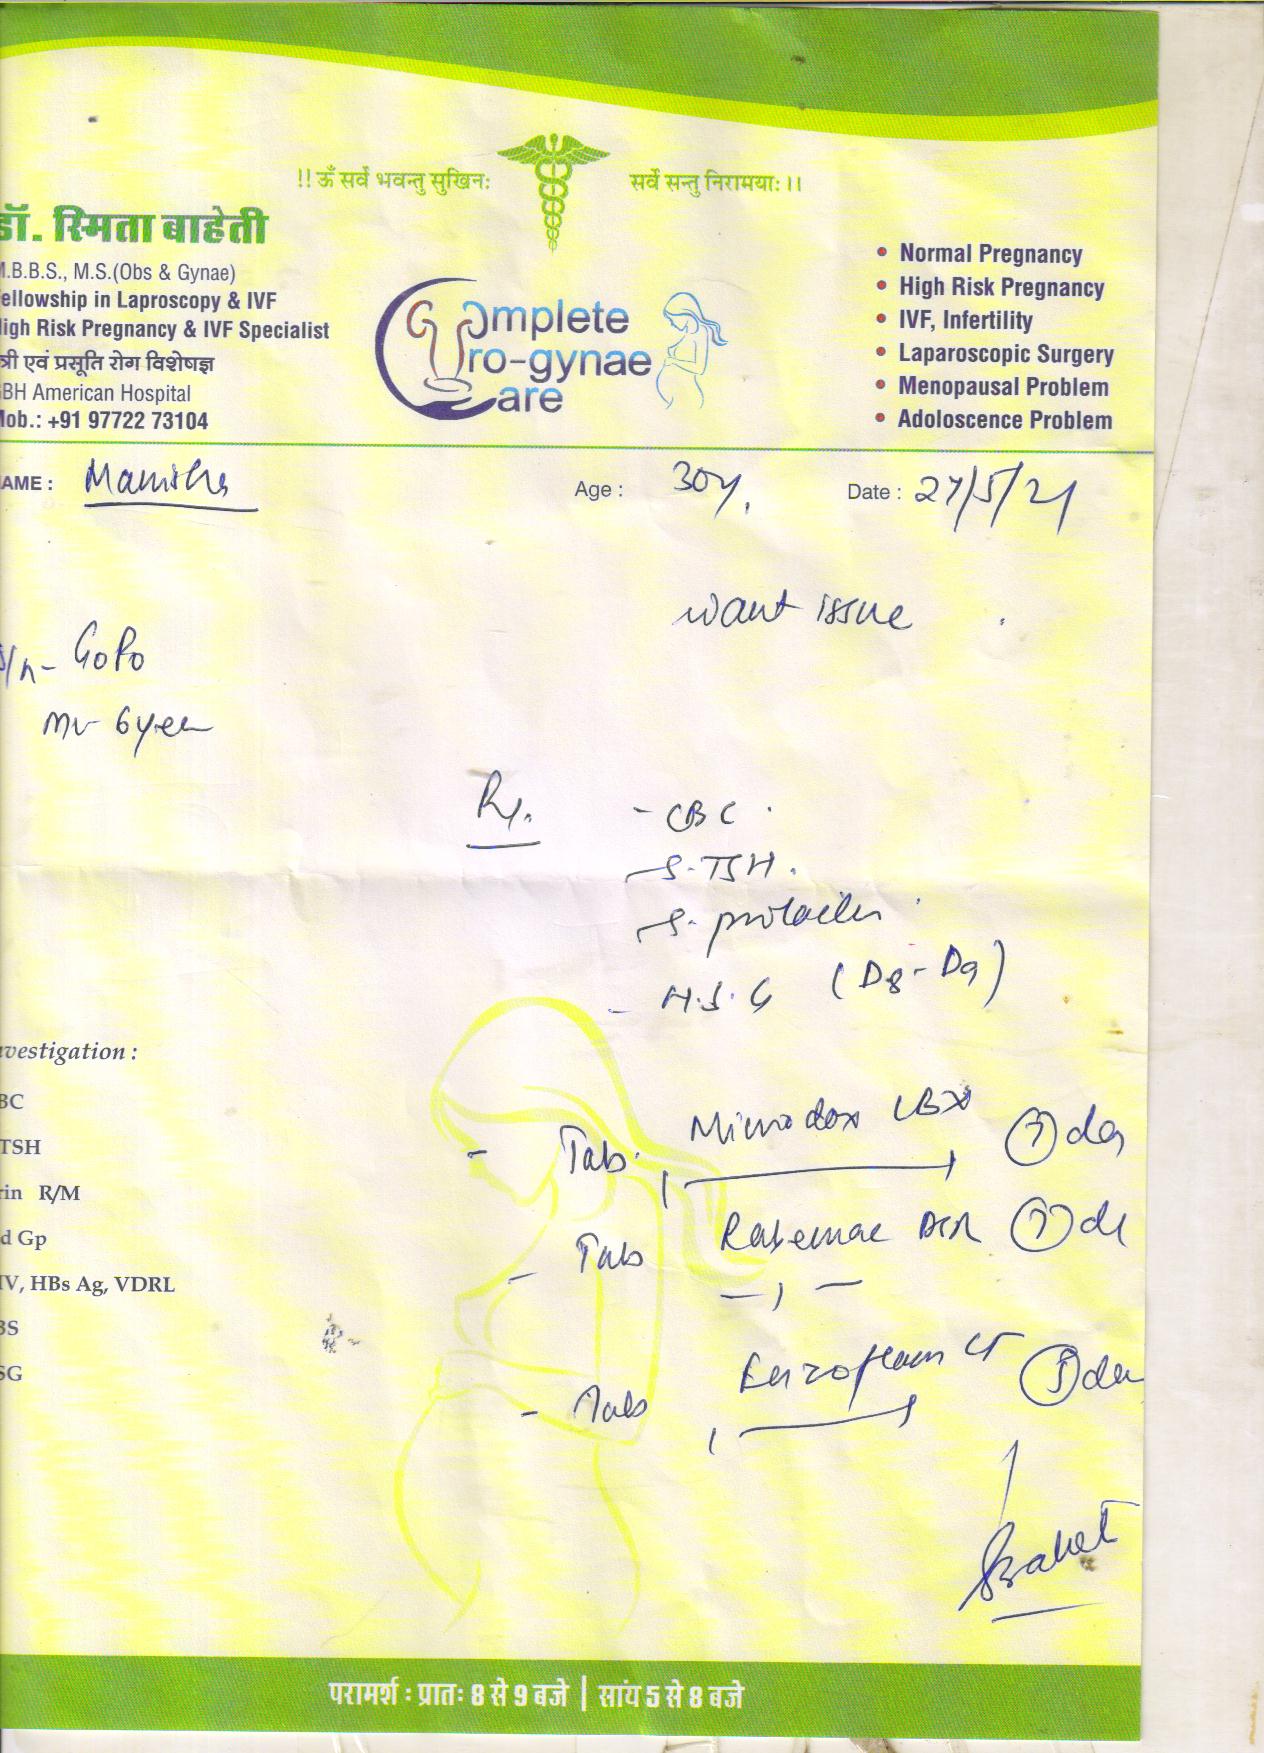 !! ॐ सर्वे भवन्तु सुखिनः सर्वे सन्तु निरामयाः।।
डॉ. स्मिता बाहेती
M.B.B.S., M.S.(Obs & Gynae)
ellowship in Laproscopy & IVF
igh Risk Pregnancy & IVF Specialist
त्री एवं प्रसूति रोग विशेषज्ञ
BH American Hospital
Mob.: +91 97722 73104
Complete
Uro-gynae
Care
• Normal Pregnancy
• High Risk Pregnancy
• IVF, Infertility
• Laparoscopic Surgery
• Menopausal Problem
• Adoloscence Problem
AME : Manisha Age : 30y. Date : 27/5/21
want issue
G0P0
6 year
Rx.
- CBC
- S. TSH.
- S. prolactin
- H.S.G (D8-D9)
vestigation :
BC
TSH
rin R/M
d Gp
IV, HBs Ag, VDRL
BS
SG
- Tab. Microdox LBX (7) da
- Tab DSR (7) d
- Tab (5) da
परामर्श : प्रातः 8 से 9 बजे | सांय 5 से 8 बजे